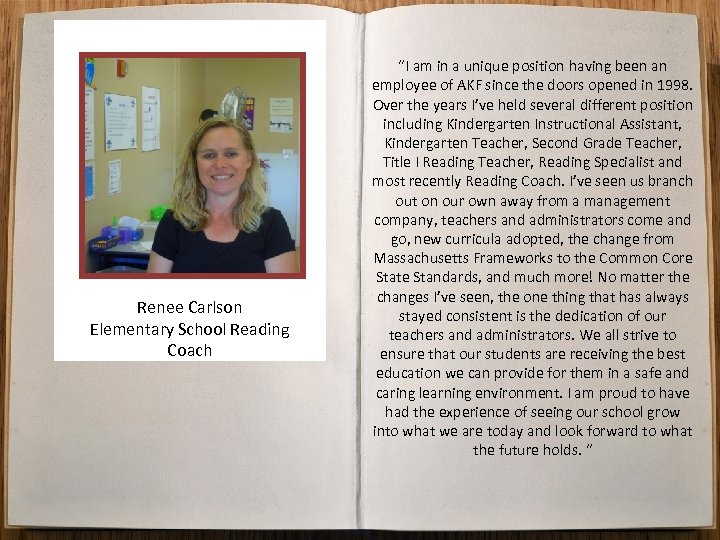 Renee Carlson
Elementary School Reading
Coach
“I am in a unique position having been an
employee of AKF since the doors opened in 1998.
Over the years I’ve held several different position
including Kindergarten Instructional Assistant,
Kindergarten Teacher, Second Grade Teacher,
Title I Reading Teacher, Reading Specialist and
most recently Reading Coach. I’ve seen us branch
out on our own away from a management
company, teachers and administrators come and
go, new curricula adopted, the change from
Massachusetts Frameworks to the Common Core
State Standards, and much more! No matter the
changes I’ve seen, the one thing that has always
stayed consistent is the dedication of our
teachers and administrators. We all strive to
ensure that our students are receiving the best
education we can provide for them in a safe and
caring learning environment. I am proud to have
had the experience of seeing our school grow
into what we are today and look forward to what
the future holds. “